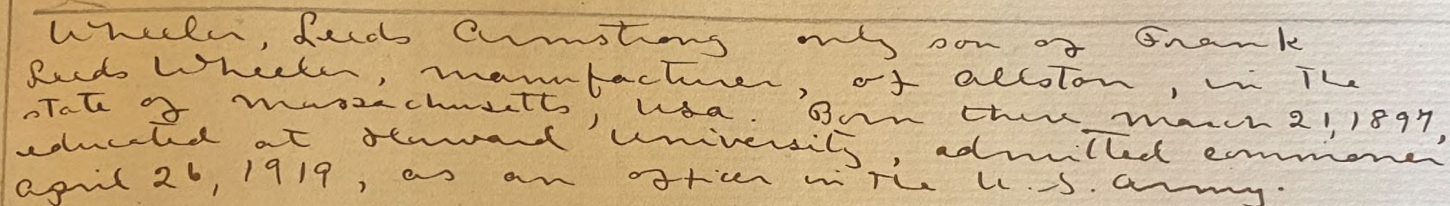 Wheeler, Leeds Armstrong only son of Frank
Leeds Wheeler, manufacturer, of Allston, in the
state of Massachusetts, USA. Born there March 21, 1897,
educated at Harvard University, admitted commoner
April 26, 1919, as an officer in the U.S. Army.